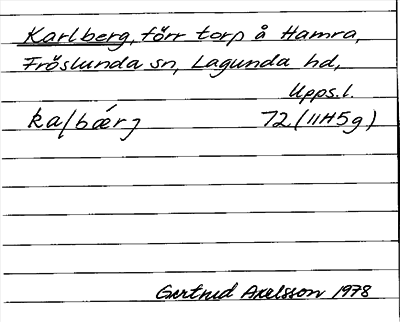 Karlberg, förr torp å Hamra,
Fröslunda sn, Lagunda hd,
Upps.l.
kaḷbǽrj 72 (11H5g)
Gertrud Axelsson 1978